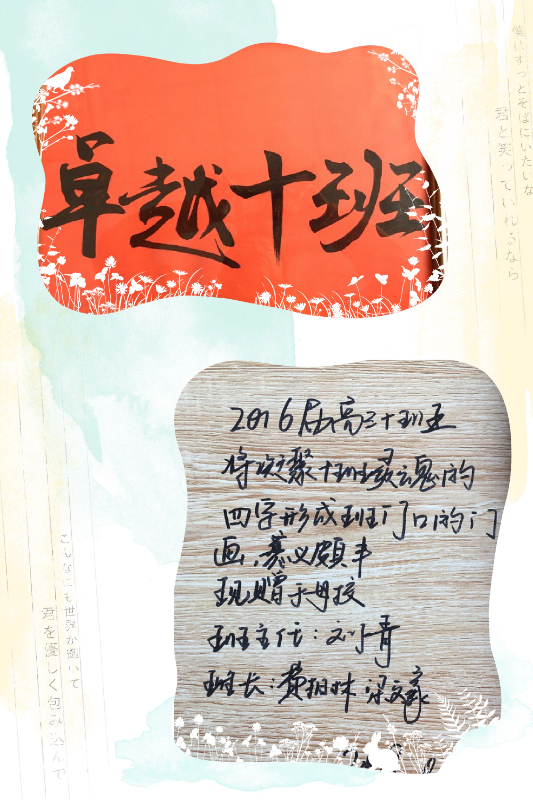 卓越十班
2016届高三十班
将凝聚十班灵魂的
四字形成班门口的门
画,意义颇丰
现赠于母校
班主任:刘青
班长:黄相林 梁文豪
僕にずっとそばにいたいな
君と笑っていれるなら
こんなにも世界が輝いて
君を優しく包み込んで